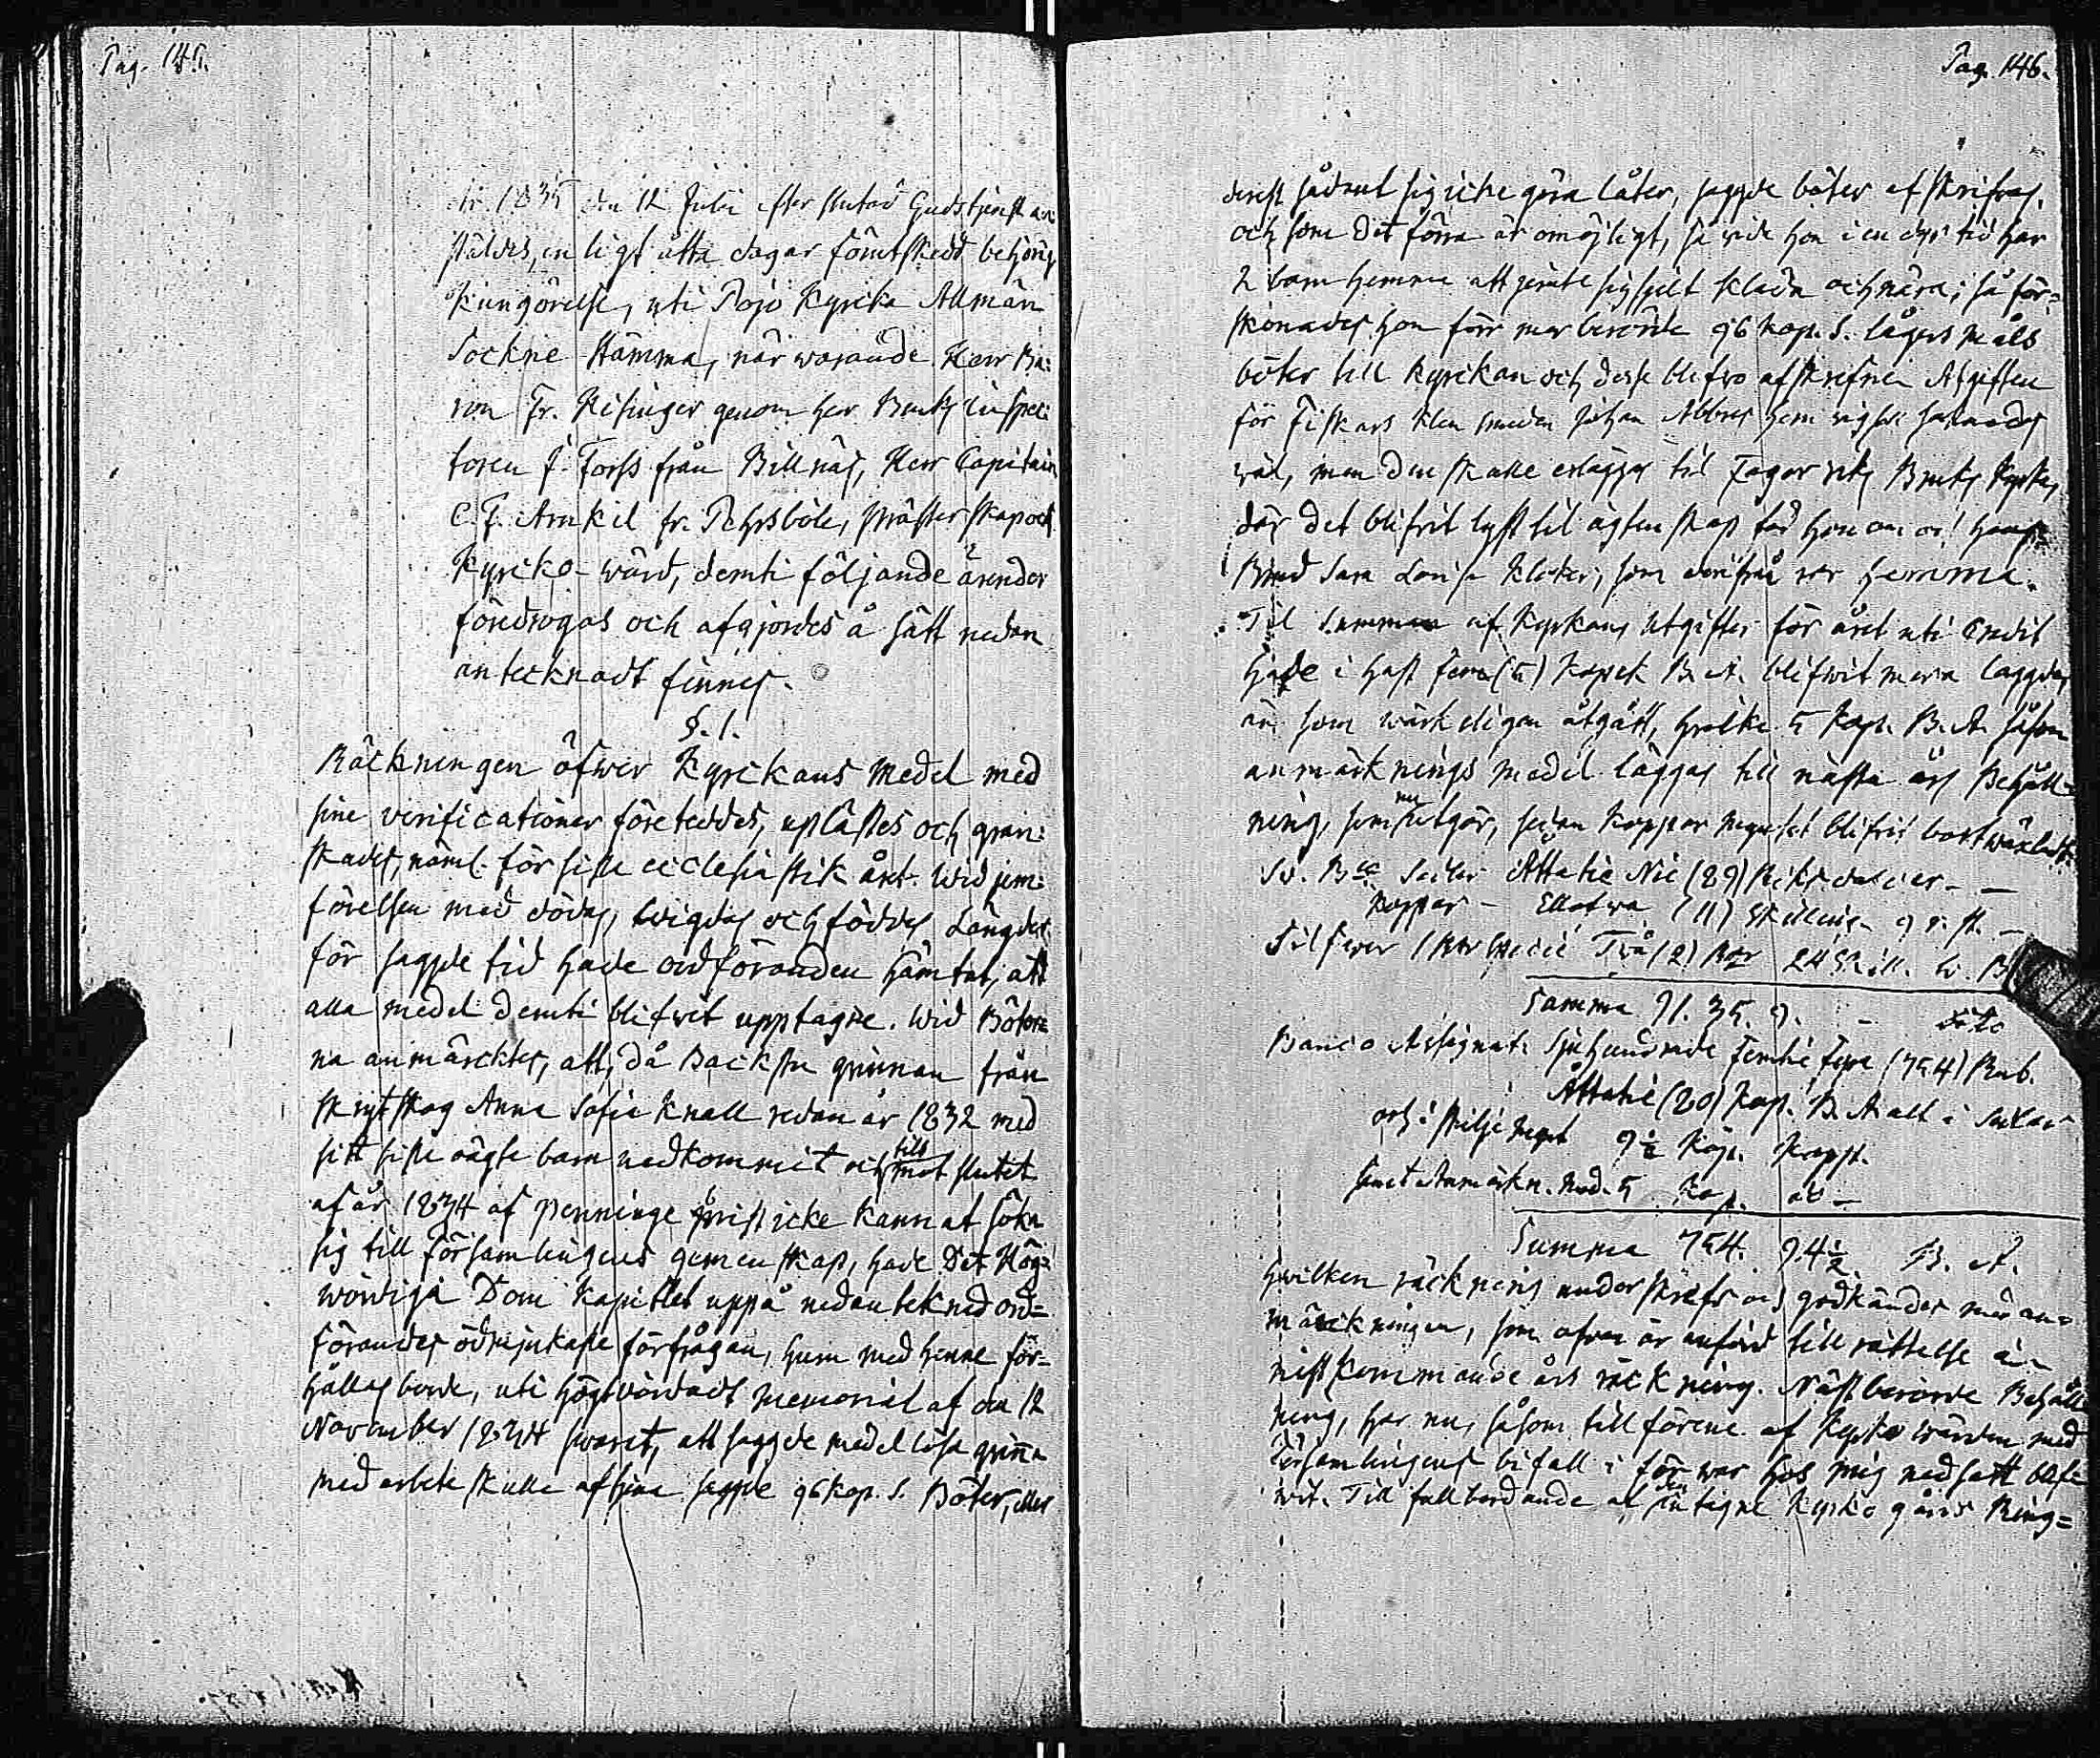 Pag. 145.
år 1835 den 12 Julii efter slutad Gudstjenst an-
stäldes, en ligt åtta dagar förutskedd behörig
Kungörelse, uti Pojo Kyrcka Allmän
Sockne Stämma, när warande Herr Ba:
ron Fr. Hisinger genom herr Bruks inspec:
toren J. Forss från Billnäs, Herr Capitain
C. F. Arnkil fr. Pehrsböle, prästerskap och
Kyrcko-wärd, demti följande ärender
föredrogos och afgjordes å sätt nedan
antecknadt finnes.
§. 1.
Räckningen öfwer Kyrckans Medel med
sine verificationer företeddes, uplästes och gran:
skades, näml. för siste ecclesiastik året. Wid jem:
förelsen med dödas, wigdas och föddes Längder
för sagde tid hade ordföranden hämtat, att
alla medel demti blifwit upptagne. Wid Böter:
na anmärcktes, att, då Backstu qvinnan från
Skrytskog Anna Sofia Knall redan år 1832 med
sitt siste oägte barn nedkommit och till
mot slutet
af år 1834 af penninge brist icke kunnat söka
sig till Församlingens gemenskap, hade Det Hög=
wördiga Dom Kapitlet uppå nedanteknad ord=
förandes ödmjukaste förfrågan, huru med henne för=
hållas borde, uti högtvördadt Memorial af den 12
November 1834 swarat, att sagde medellösa qvinna
med arbete skulle aftjena sagde 96 kop. S. Böter, eller
Pag. 146.
derest sådant sig icke göra låter, sagde böter afskrifvas,
och som det förra är omöjligt, så wida hon i en dyr tid har
2 barn hemma att jemte sig sjelf kläda och nära; så för=
skonades hon för mer berörde 96 kop. S. lägersmåls
böter till kyrckan och desse blefvo afskrefne. Afgiften
för Fiskars Klen smeden Johan Abbors hem wigsel saknades
wäl, men den skulle erläggas til Fagerwiks Bruks kyrka,
där det blifvit lyst til ägtenskap för honom och hans
Brud Sara Lovisa Klocker, som derifrån var hemma.
Til Summan af Kyrkans Utgifter för året uti Credit
hade i hast fem (5) Kopek B. A. blifwit mera lagdes
än som wärkeligen åtgått, hvilke 5 Kop. B. A. såsom
anmärknings medel läggas till nästa års Behåll=
ning, som nu utgör, sedan koppar myntet blifvit bortwäxladt:
Sv. Bco Sedlar Åttatie Nie (89) Riksdaler - —
Koppar - Ellofwa (11) Skilling 9 r. st. —
Silfwer 1 Rdr specie Två (2) Rdr 24 Skill. Sv. B
Summa 91. 35. 9. - dito
Banco Assignat. Sjuhundrade Femtie Fyra (754) Rub.
Åttatie (80) Kop. B. A. allt i Sedlar
och i skilje mynt 9½ Kop. Kopp.
samt Anmärkn. Med. 5 Kop. dº —
Summa 754. 94½. B. A.
Hwilken räckning underskrefs och godkändes med an=
märckningen, som ofwan är anförd till rättelse i
nästkommande års räckning. Nästberörde Behåll
ning, har nu, såsom tillförene af Kyrko wärden med
Församlingens bifall i förwar hos mig nedsatt blif
wit. Till fullbordande af den
tigne Kyrko gårds Ring=